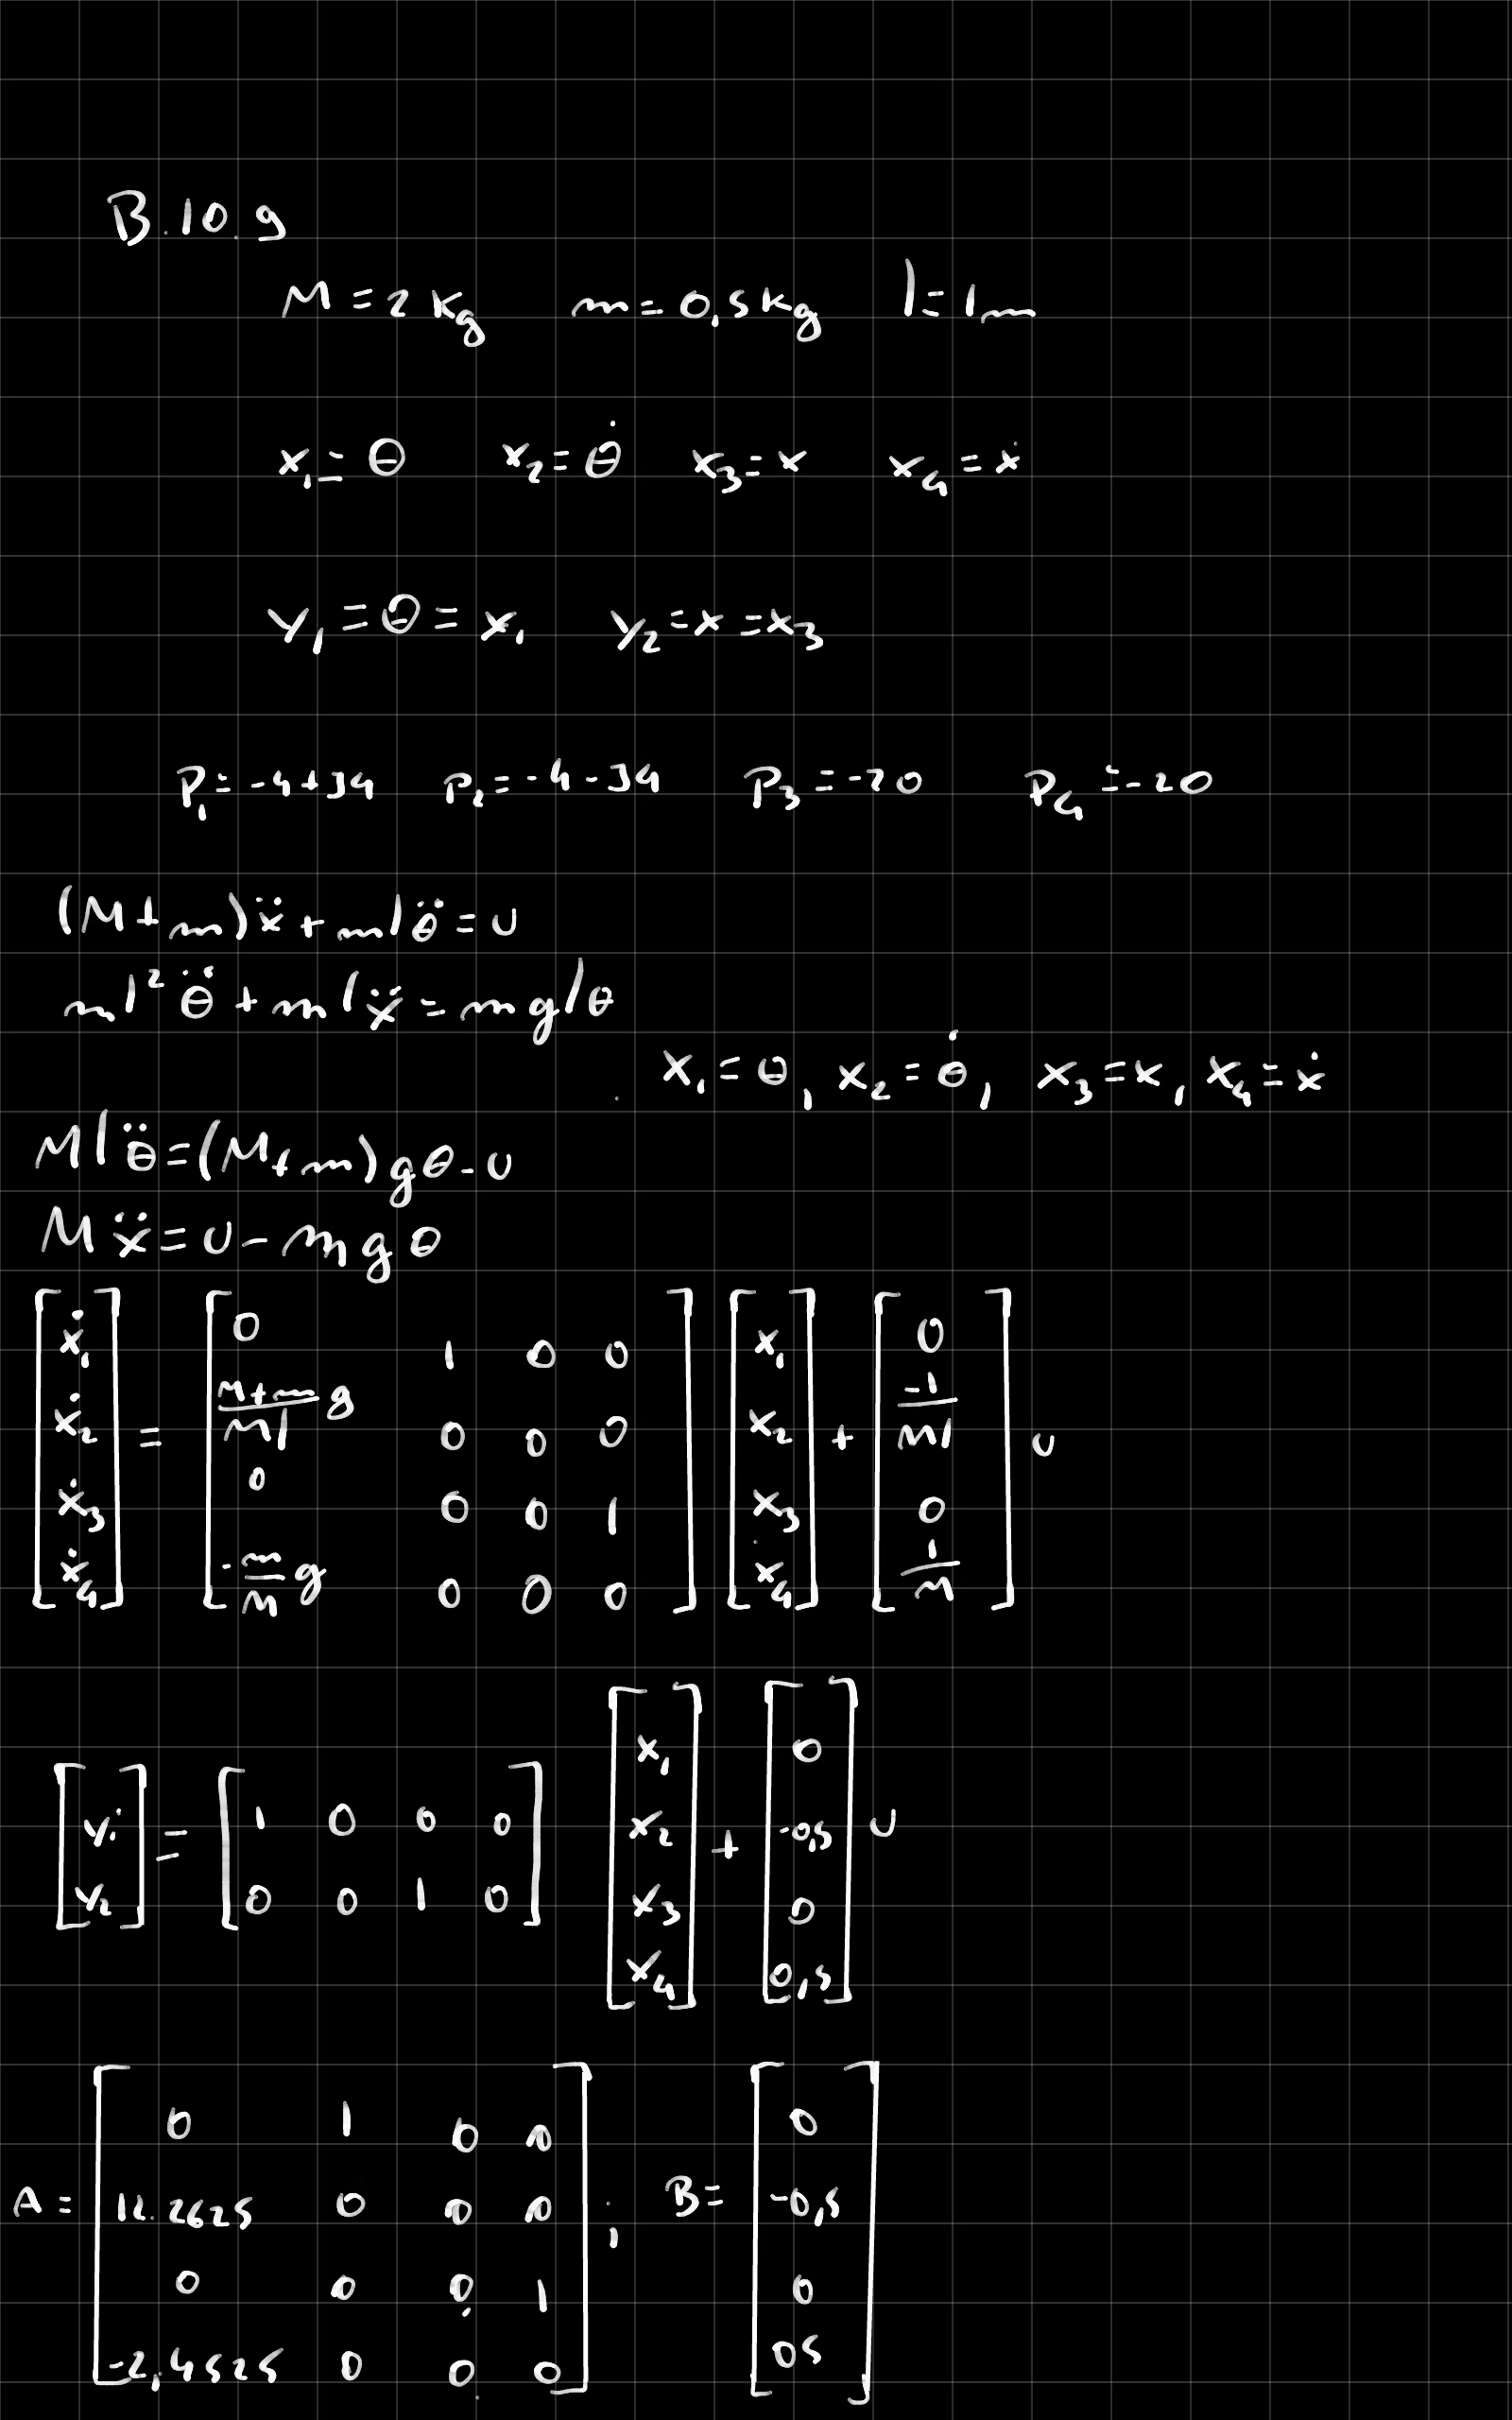 B.10.9
M = 2 Kg m = 0,5 kg l = 1m
x₁ = θ x₂ = θ̇ x₃ = x x₄ = ẋ
y₁ = θ = x₁ y₂ = x = x₃
P₁ = -4+J4 P₂ = -4-J4 P₃ = -20 P₄ = -20
(M+m)ẍ + mlθ̈ = u
ml²θ̈ + mlẍ = mglθ
x₁ = θ, x₂ = θ̇, x₃ = x, x₄ = ẋ
Mlθ̈ = (M+m)gθ - u
Mẍ = u - mgθ
[ẋ₁; ẋ₂; ẋ₃; ẋ₄] = [0 1 0 0; (M+m)/(Ml) g 0 0 0; 0 0 0 1; -m/M g 0 0 0] [x₁; x₂; x₃; x₄] + [0; -1/(Ml); 0; 1/M] u
[y₁; y₂] = [1 0 0 0; 0 0 1 0] [x₁; x₂; x₃; x₄] + [0; -0,5; 0; 0,5] u
A = [0 1 0 0; 12.2625 0 0 0; 0 0 0 1; -2,4525 0 0 0]; B = [0; -0,5; 0; 05]